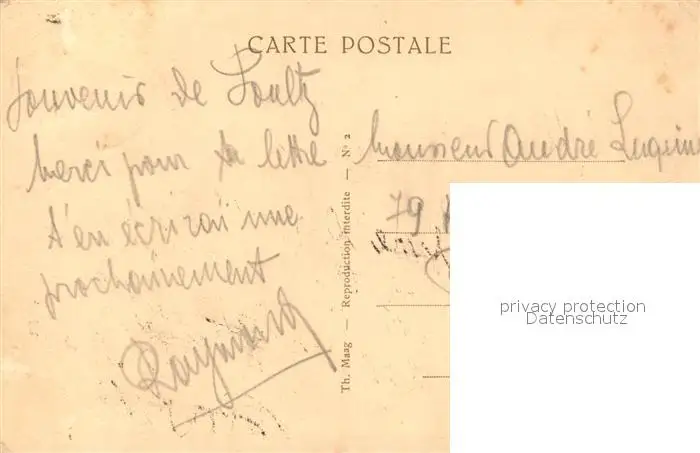 CARTE POSTALE
Souvenir de Soultz
Merci pour ta lettre
t'en écrirai une
prochainement
Raymond
Th. Maag — Reproduction interdite — N° 2
Monsieur André
79
privacy protection
Datenschutz